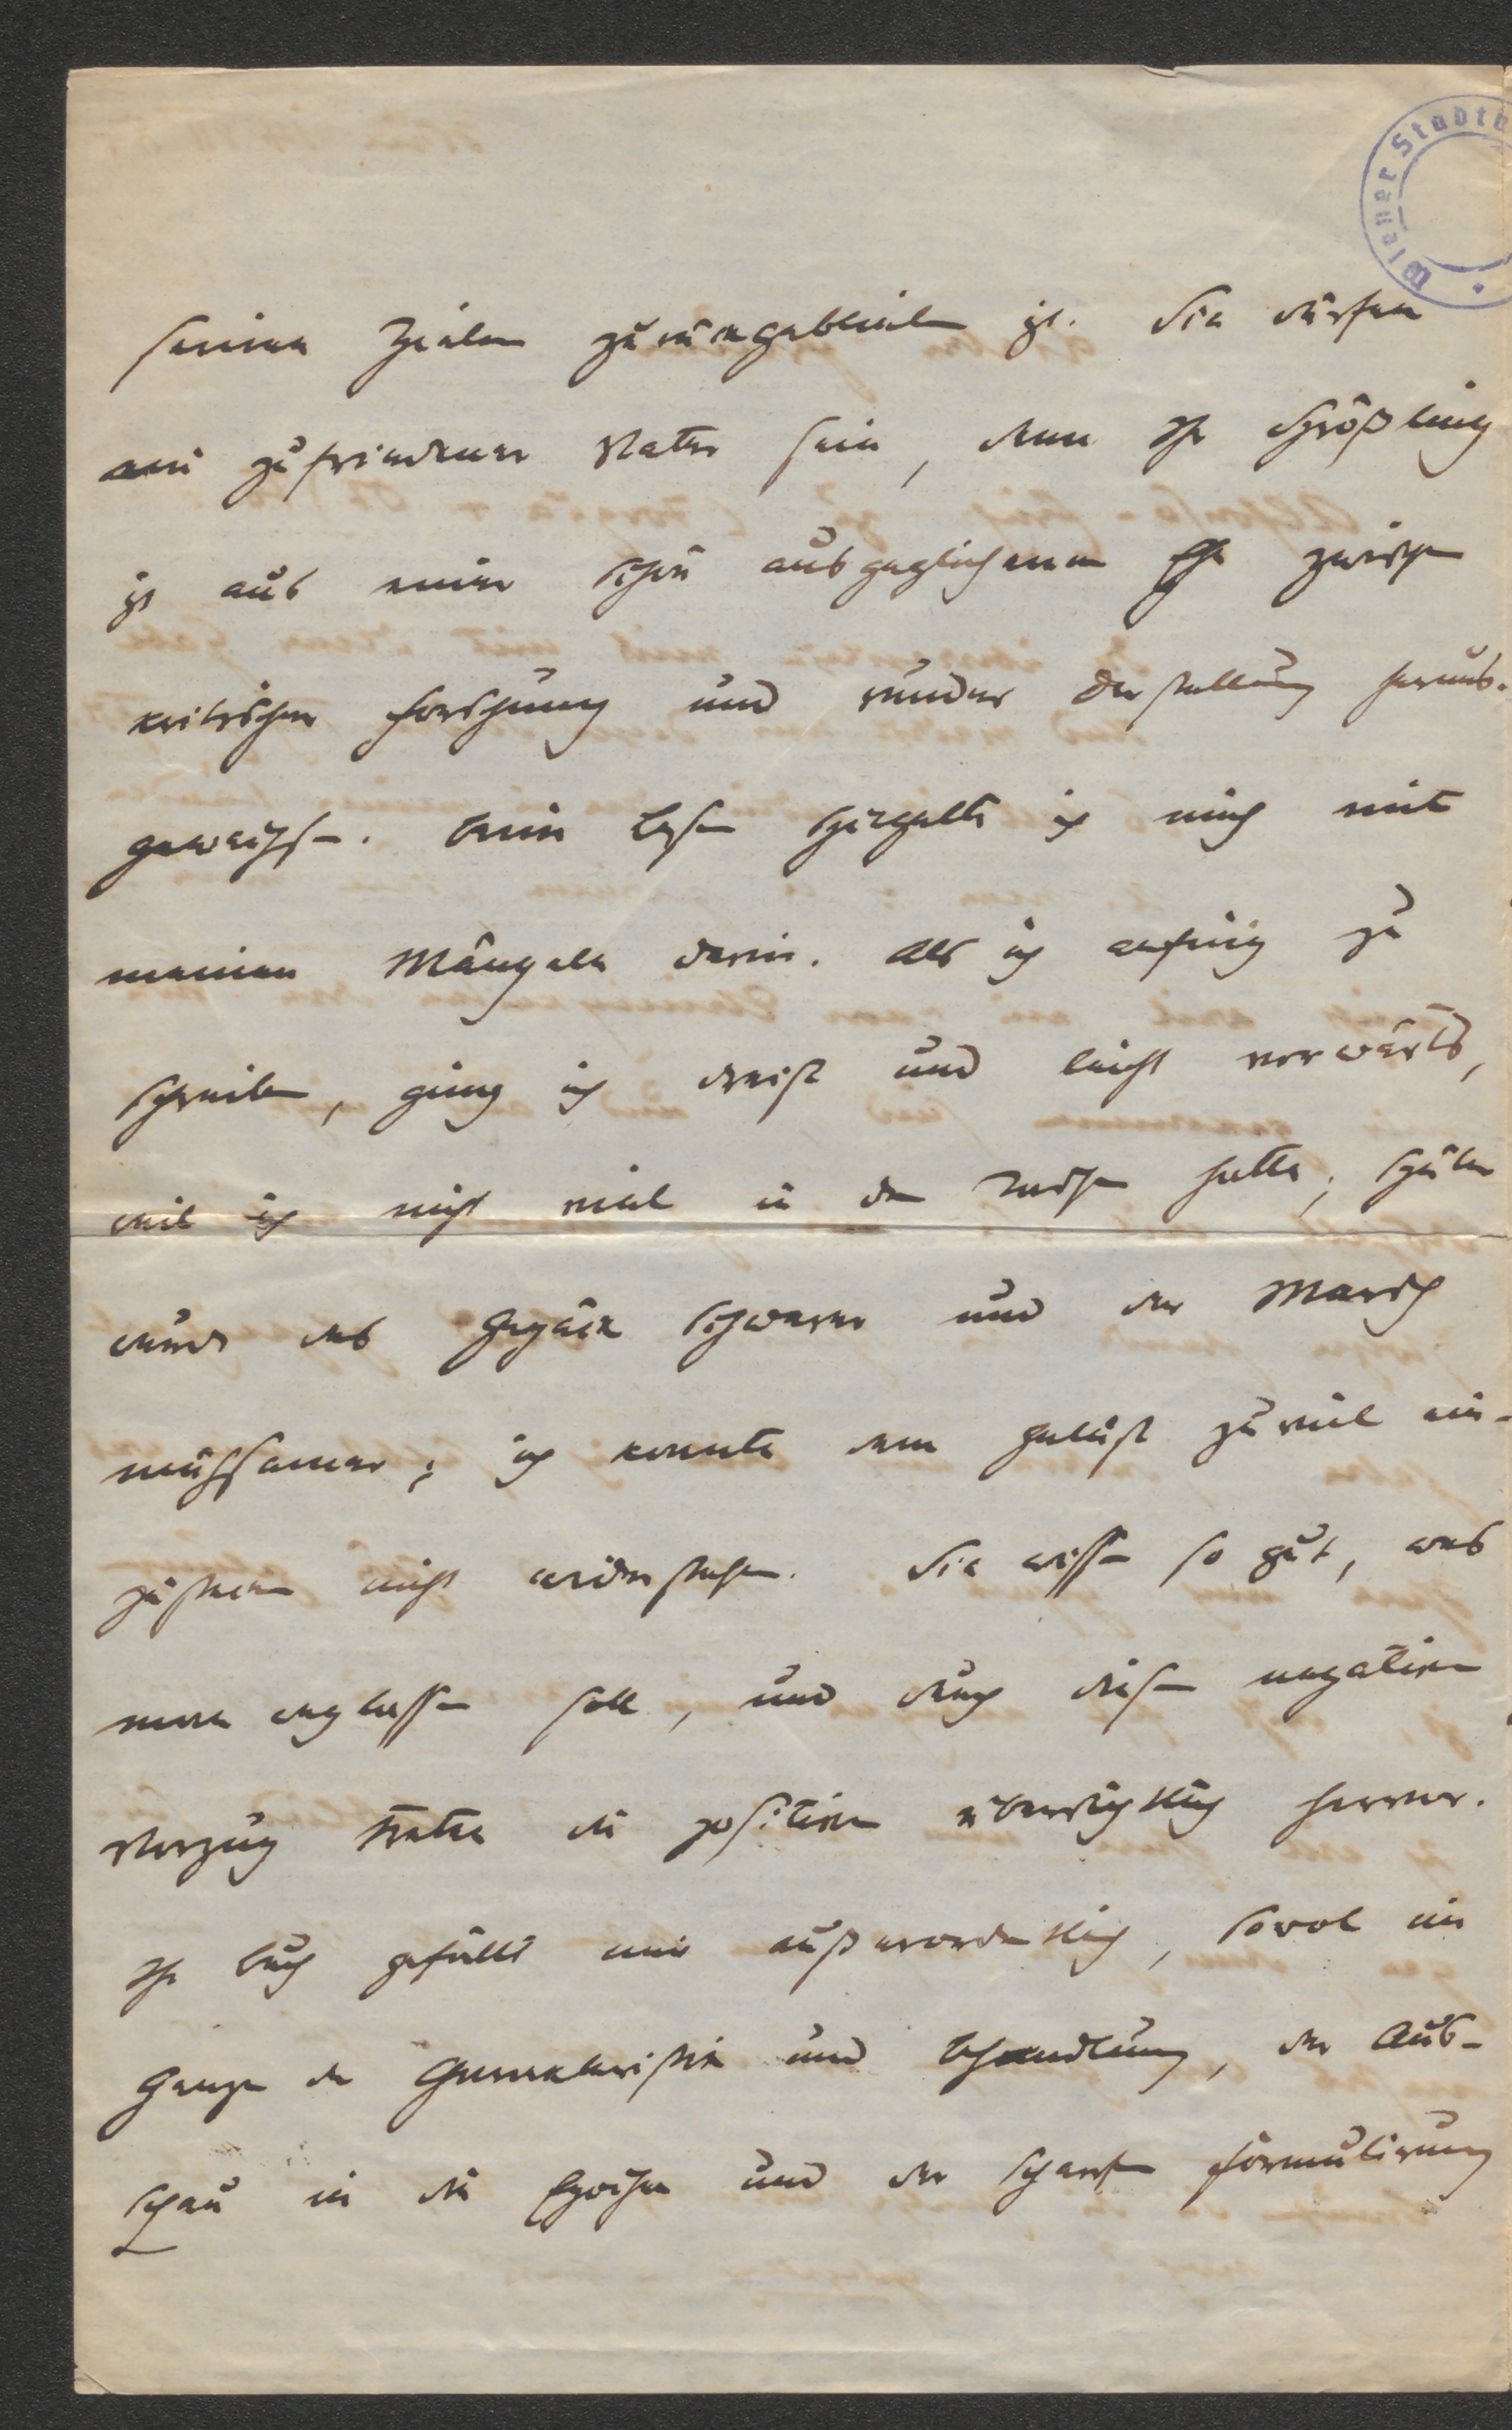 Wiener Stadtb
seinen Zielen zurückgeblieben ist. Sie dürfen
ein zufriedener Vater sein, denn Ihr Sprößling
ist aus einer schön ausgeglichenen Ehe zwischen
kritischer Forschung und runder Darstellung heraus-
gewachsen. Beim Lesen spiegelte ich mich mit
meinen Mängeln darin. Als ich anfing zu
schreiben, ging ich dreist und leicht vorwärts,
weil ich nicht viel in den Taschen hatte; später
wurde das Gepäck schwerer und der Marsch
mühsamer; ich konnte dem Gelüst zu viel ein-
zustecken nicht widerstehen. Sie wissen so gut, was
man weglassen soll, und durch diesen negativen
Vorzug treten die positiven übersichtlich hervor.
Ihr Buch gefällt mir außerordentlich, sowol im
Ganzen der Charakteristik und Behandlung, der Aus-
schau in die Epochen und der scharfen Formulirung